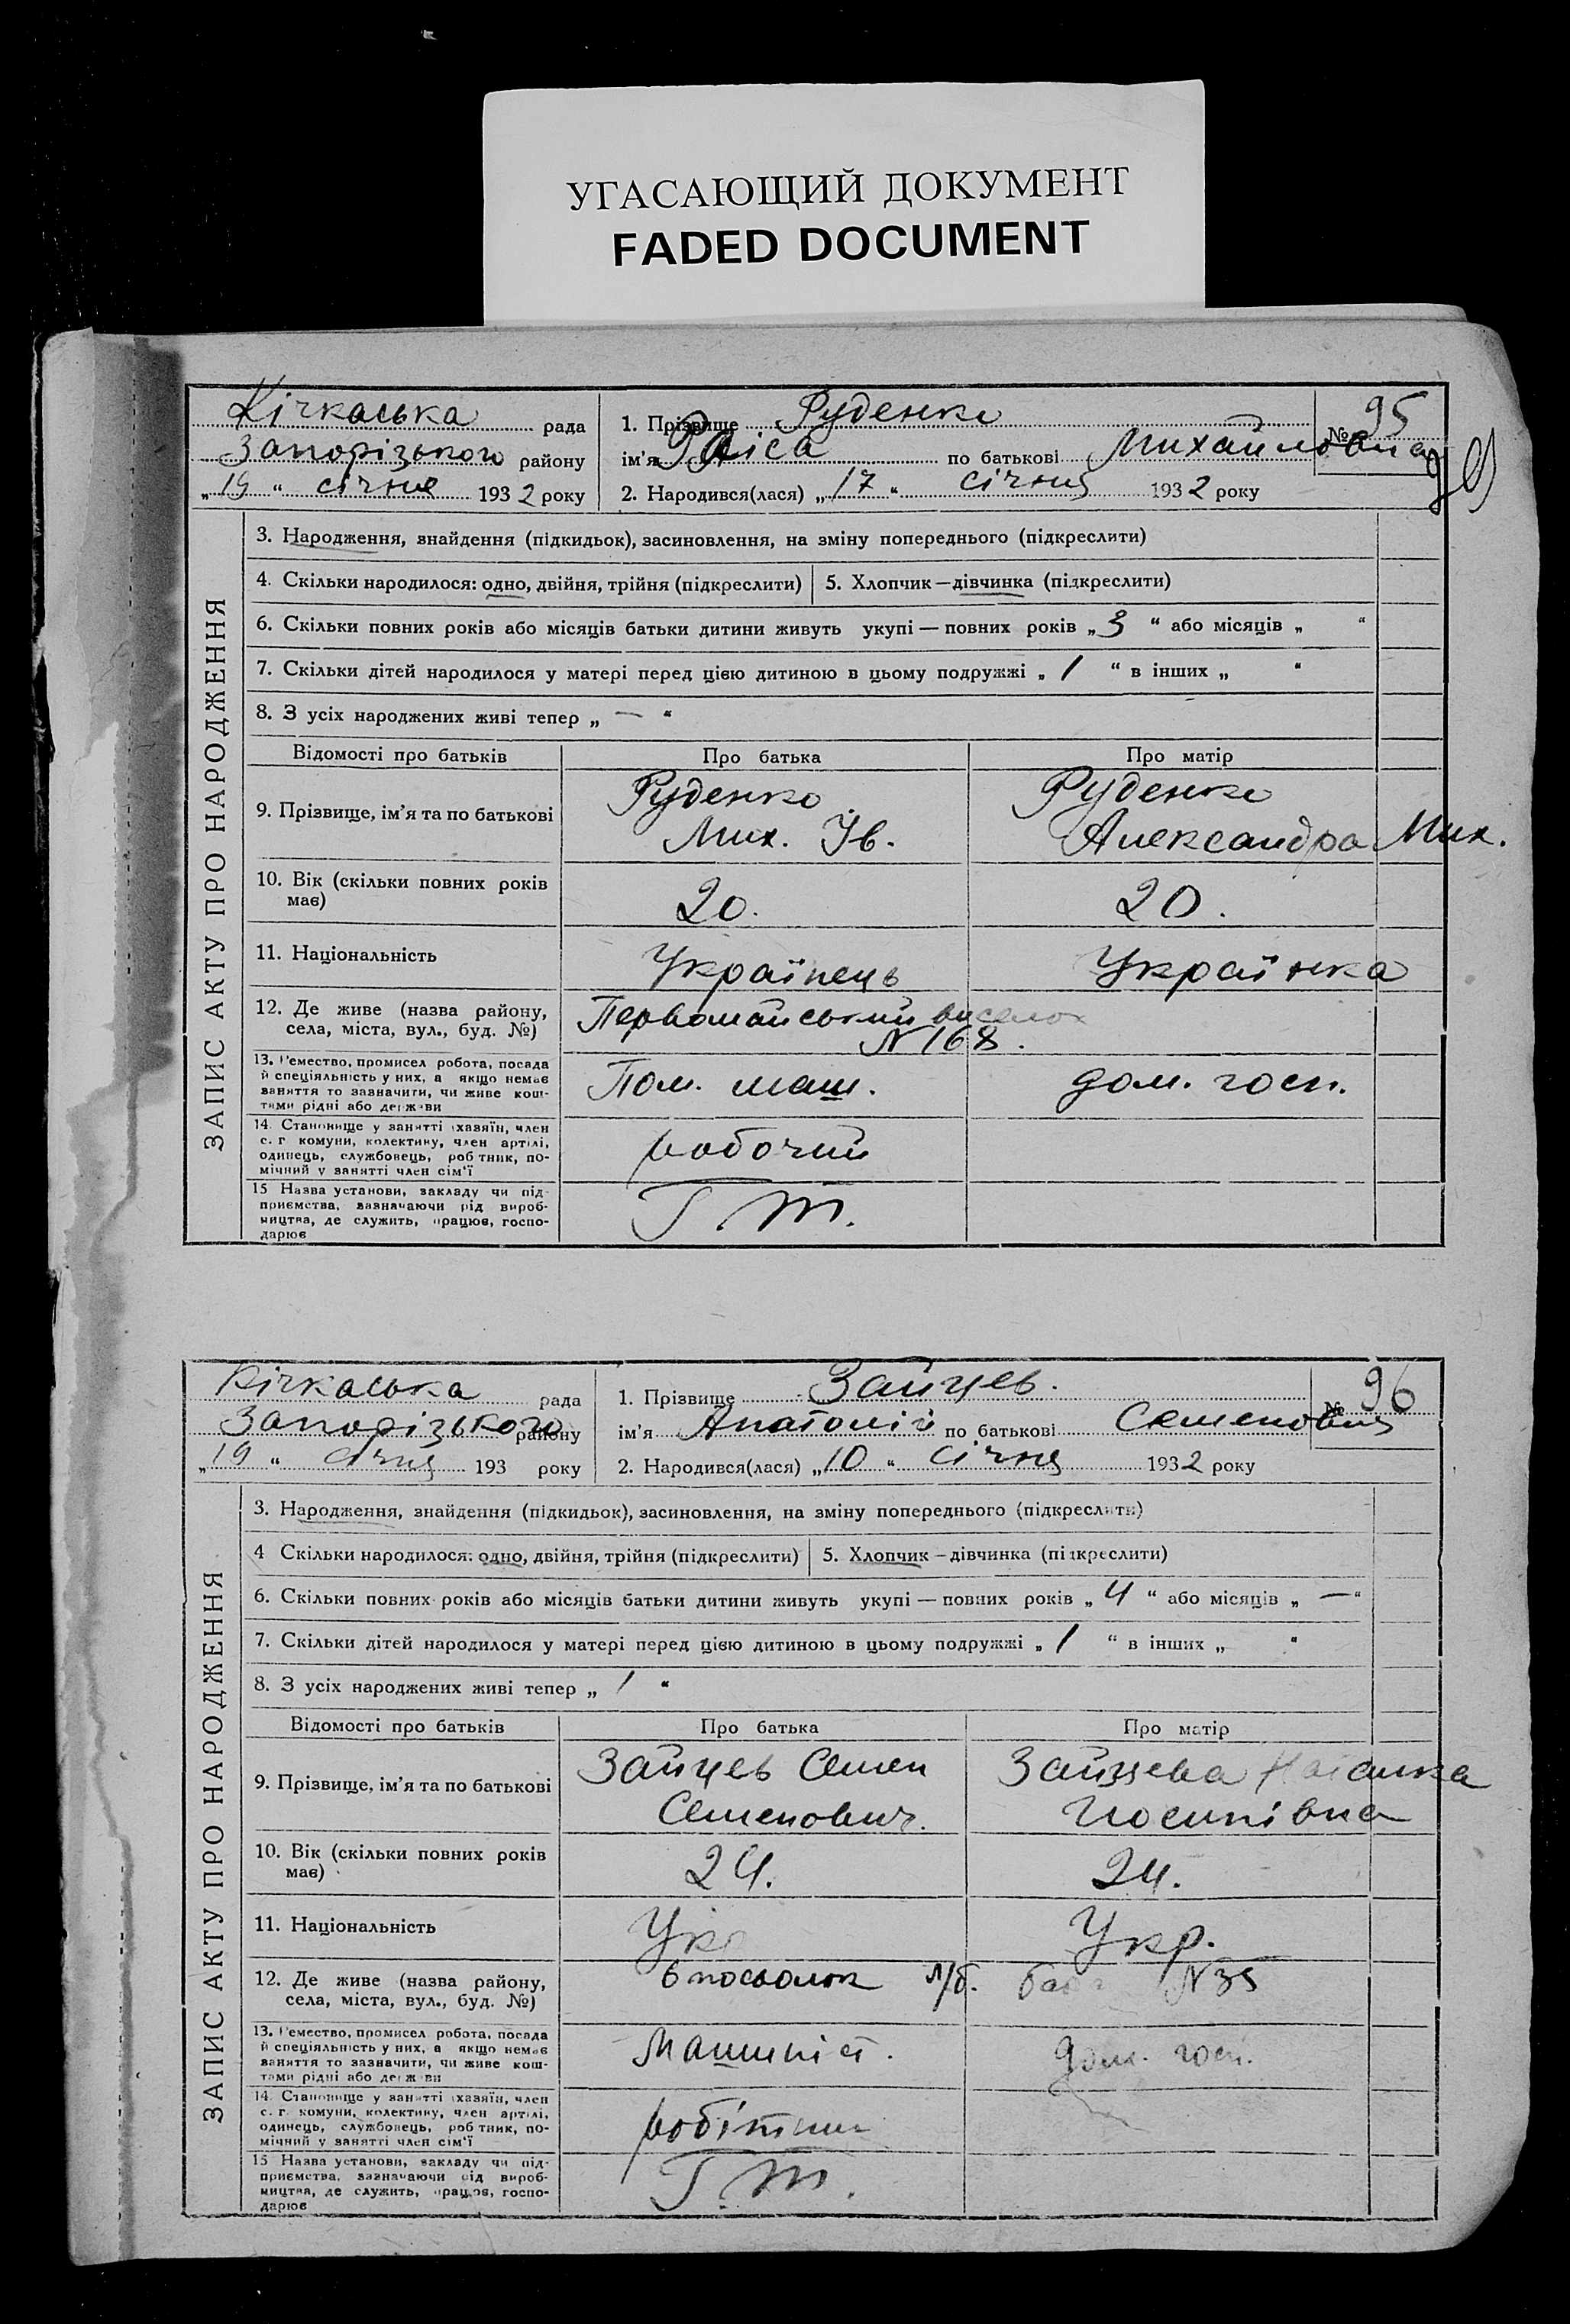 УГАСАЮЩИЙ ДОКУМЕНТ
FADED DOCUMENT
Кічкаська рада
Запорізького району
„19“ січня 1932 року
1. Прізвище Руденко
ім'я Раіса по батькові Михайловна
2. Народився(лася) „17“ січня 1932 року
№ 95
ЗАПИС АКТУ ПРО НАРОДЖЕННЯ
3. Народження, знайдення (підкидьок), засиновлення, на зміну попереднього (підкреслити)
4. Скільки народилося: одно, двійня, трійня (підкреслити) 5. Хлопчик—дівчинка (підкреслити)
6. Скільки повних років або місяців батьки дитини живуть укупі — повних років „3“ або місяців „ “
7. Скільки дітей народилося у матері перед цією дитиною в цьому подружжі „1“ в інших „ “
8. З усіх народжених живі тепер „—“
Відомості про батьків Про батька Про матір
9. Прізвище, ім'я та по батькові
Руденко Мих. Ів.
Руденко Александра Мих.
10. Вік (скільки повних років має) 20. 20.
11. Національність Українець Українка
12. Де живе (назва району, села, міста, вул., буд. №)
Первомайський виселок
N 168.
13. Ремество, промисел робота, посада й спеціяльність у них, а якщо немає заняття то зазначити, чи живе коштами рідні або держави
Пом. маш. дом. госп.
14. Становище у занятті (хазяїн, член с. г. комуни, колективу, член артілі, одинець, службовець, робітник, помічний у занятті член сім'ї
робочий
15 Назва установи, закладу чи підприємства, зазначаючи рід виробництва, де служить, працює, господарює
Г. Т.
Кічкаська рада
Запорізького району
„19“ січня 193 року
1. Прізвище Зайцев.
ім'я Анатолій по батькові Семенович
2. Народився(лася) „10“ січня 1932 року
№ 96
ЗАПИС АКТУ ПРО НАРОДЖЕННЯ
3. Народження, знайдення (підкидьок), засиновлення, на зміну попереднього (підкреслити)
4 Скільки народилося: одно, двійня, трійня (підкреслити) 5. Хлопчик—дівчинка (підкреслити)
6. Скільки повних років або місяців батьки дитини живуть укупі — повних років „4“ або місяців „—“
7. Скільки дітей народилося у матері перед цією дитиною в цьому подружжі „1“ в інших „ “
8. З усіх народжених живі тепер „1“
Відомості про батьків Про батька Про матір
9. Прізвище, ім'я та по батькові
Зайцев Семен Семенович.
Зайцева Йосипівна
10. Вік (скільки повних років має) 24. 24.
11. Національність Укр Укр.
12. Де живе (назва району, села, міста, вул., буд. №)
6 посьолок л/б. N 35
13. Ремество, промисел робота, посада й спеціяльність у них, а якщо немає заняття то зазначити, чи живе коштами рідні або держави
Машиніст. дом. госп.
14. Становище у занятті (хазяїн, член с. г. комуни, колективу, член артілі, одинець, службовець, робітник, помічний у занятті член сім'ї
робітник
15 Назва установи, закладу чи підприємства, зазначаючи рід виробництва, де служить, працює, господарює
Г. Т.